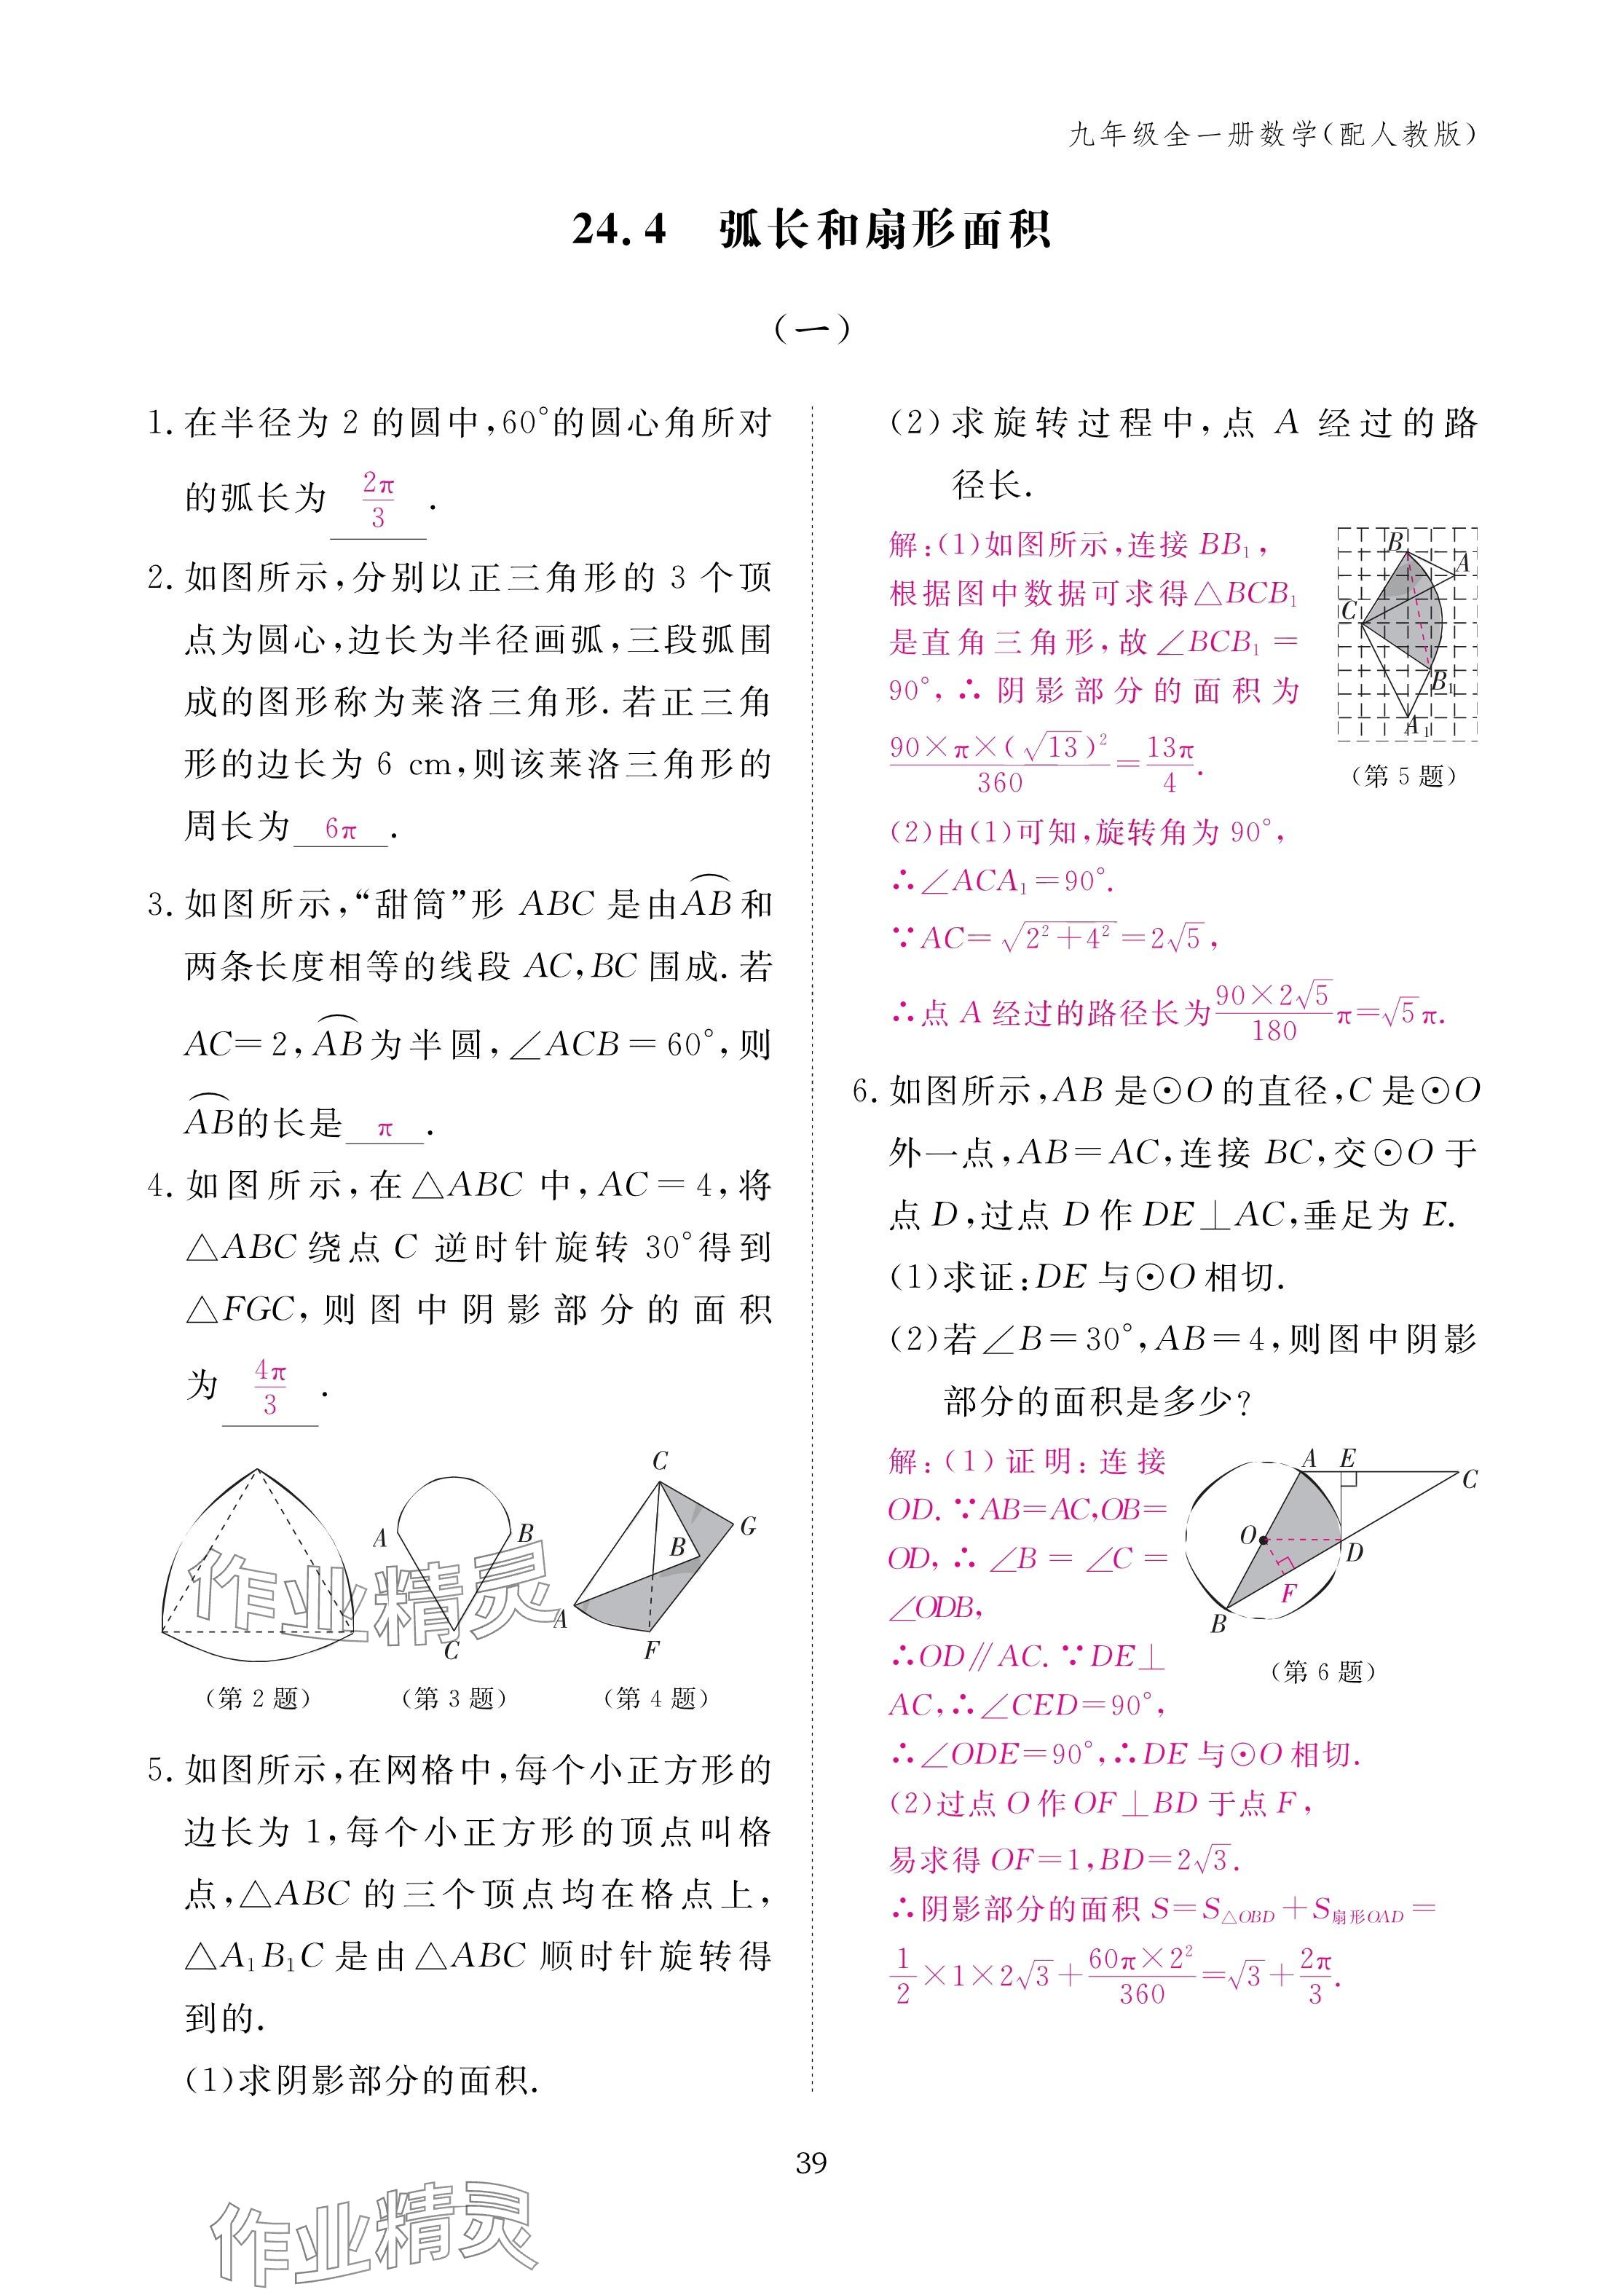 九年级全一册数学(配人教版)
24.4 弧长和扇形面积
(一)
1. 在半径为 2 的圆中,60°的圆心角所对
的弧长为 2π/3 .
2. 如图所示,分别以正三角形的 3 个顶
点为圆心,边长为半径画弧,三段弧围
成的图形称为莱洛三角形. 若正三角
形的边长为 6 cm,则该莱洛三角形的
周长为 6π .
3. 如图所示,“甜筒”形 ABC 是由⌒AB和
两条长度相等的线段 AC,BC 围成. 若
AC=2,⌒AB为半圆,∠ACB=60°,则
⌒AB的长是 π .
4. 如图所示,在△ABC 中,AC=4,将
△ABC 绕点 C 逆时针旋转 30°得到
△FGC,则图中阴影部分的面积
为 4π/3 .
C
A
B
C
G
B
A
F
C
(第 2 题)
(第 3 题)
(第 4 题)
5. 如图所示,在网格中,每个小正方形的
边长为 1,每个小正方形的顶点叫格
点,△ABC 的三个顶点均在格点上,
△A₁B₁C 是由△ABC 顺时针旋转得
到的.
(1)求阴影部分的面积.
(2)求旋转过程中,点 A 经过的路
径长.
解:(1)如图所示,连接 BB₁,
根据图中数据可求得△BCB₁
是直角三角形,故∠BCB₁=
90°,∴阴影部分的面积为
90×π×(√13)²/360=13π/4.
B
A
C
B₁
A₁
(第 5 题)
(2)由(1)可知,旋转角为 90°,
∴∠ACA₁=90°.
∵AC=√(2²+4²)=2√5,
∴点 A 经过的路径长为90×2√5/180π=√5π.
6. 如图所示,AB 是⊙O 的直径,C 是⊙O
外一点,AB=AC,连接 BC,交⊙O 于
点 D,过点 D 作 DE⊥AC,垂足为 E.
(1)求证:DE 与⊙O 相切.
(2)若∠B=30°,AB=4,则图中阴影
部分的面积是多少?
解:(1)证明:连接
OD.∵AB=AC,OB=
OD,∴∠B=∠C=
∠ODB,
∴OD∥AC.∵DE⊥
AC,∴∠CED=90°,
A E
C
O
D
F
B
(第 6 题)
∴∠ODE=90°,∴DE 与⊙O 相切.
(2)过点 O 作 OF⊥BD 于点 F,
易求得 OF=1,BD=2√3.
∴阴影部分的面积 S=S△OBD+S扇形OAD=
1/2×1×2√3+60π×2²/360=√3+2π/3.
39
作业精灵
作业精灵